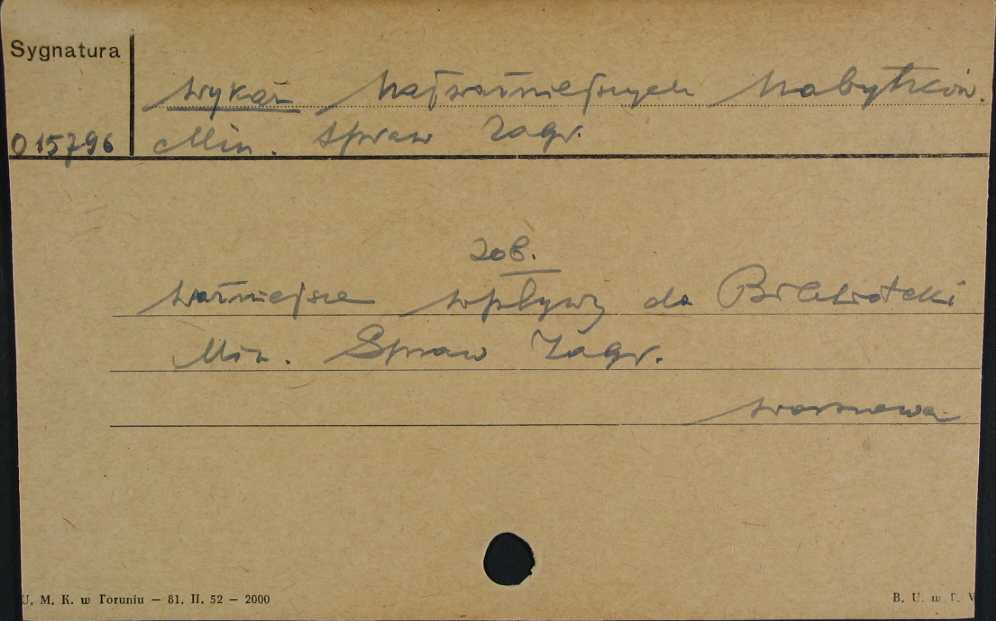 Sygnatura
Wykaz Najważniejszych Nabytków.
O 15796 Min. Spraw Zagr.
zob.
Ważniejsze wpływy do Biblioteki
Min. Spraw Zagr.
Warszawa
U. M. K. w Toruniu — 81. II. 52 — 2000
B. U. w T. V